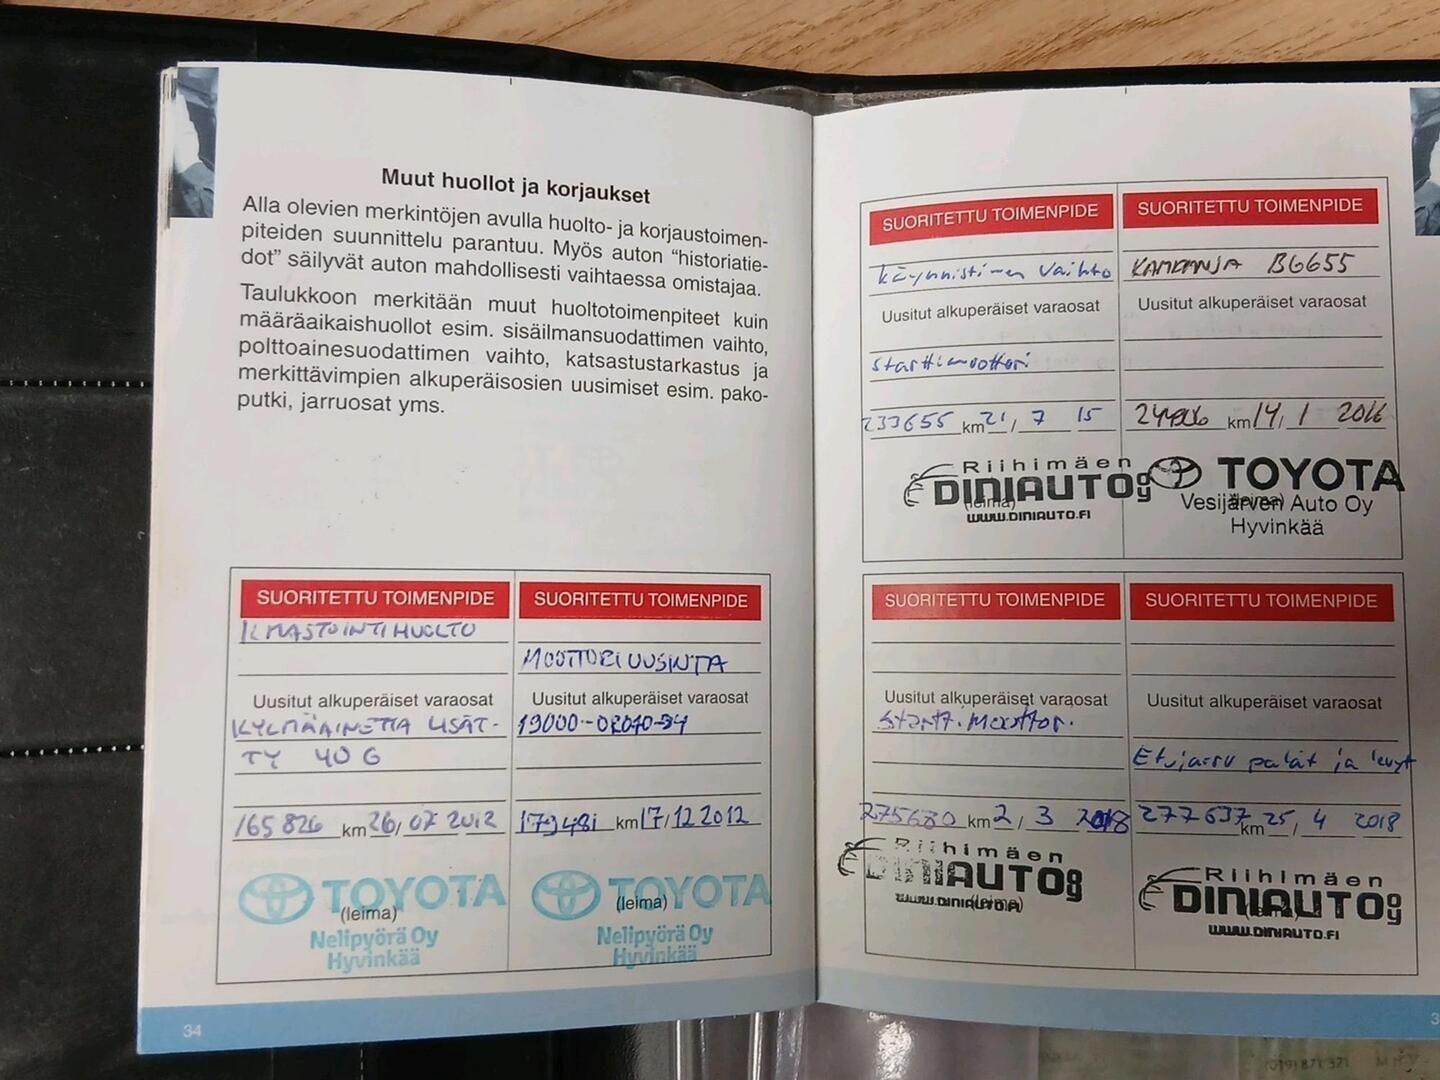 Muut huollot ja korjaukset
Alla olevien merkintöjen avulla huolto- ja korjaustoimen-
piteiden suunnittelu parantuu. Myös auton "historiatie-
dot" säilyvät auton mahdollisesti vaihtaessa omistajaa.
Taulukkoon merkitään muut huoltotoimenpiteet kuin
määräaikaishuollot esim. sisäilmansuodattimen vaihto,
polttoainesuodattimen vaihto, katsastustarkastus ja
merkittävimpien alkuperäisosien uusimiset esim. pako-
putki, jarruosat yms.
SUORITETTU TOIMENPIDE
ILMASTOINTIHUOLTO
Uusitut alkuperäiset varaosat
KYLMÄAINETTA LISÄT-
TY 40 G
165826 km 26/07 2012
TOYOTA
(leima)
Nelipyörä Oy
Hyvinkää
SUORITETTU TOIMENPIDE
MOOTTORI UUSINTA
Uusitut alkuperäiset varaosat
19000-0R070-94
179481 km 17/12 2012
TOYOTA
(leima)
Nelipyörä Oy
Hyvinkää
34
SUORITETTU TOIMENPIDE
Käynnistimen vaihto
Uusitut alkuperäiset varaosat
starttimoottori
233655 km 21/7 15
Riihimäen
DINIAUTO OY
(leima)
WWW.DINIAUTO.FI
SUORITETTU TOIMENPIDE
KAMPANJA BGG55
Uusitut alkuperäiset varaosat
km 14/1 2016
TOYOTA
(leima)
Vesijärven Auto Oy
Hyvinkää
SUORITETTU TOIMENPIDE
Uusitut alkuperäiset varaosat
Startt.moottor.
275680 km 2/3 2018
Riihimäen
DINIAUTO OY
(leima)
WWW.DINIAUTO.FI
SUORITETTU TOIMENPIDE
Uusitut alkuperäiset varaosat
Etujarru palat ja levyt
277637 km 25/4 2018
Riihimäen
DINIAUTO OY
(leima)
WWW.DINIAUTO.FI